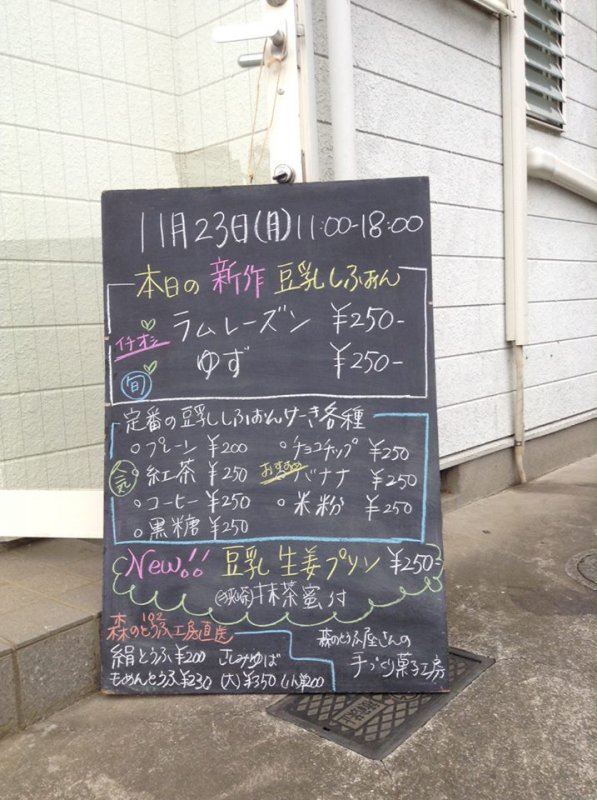 11月23日(月)11:00-18:00
本日の 新作 豆乳しふぉん
イチオシ ラムレーズン ¥250-
旬 ゆず ¥250-
定番の豆乳しふぉんけーき各種
○プレーン ¥200 ○チョコチップ ¥250
人気 ○紅茶 ¥250 おすすめ バナナ ¥250
○コーヒー ¥250 ○米粉 ¥250
○黒糖 ¥250
New!! 豆乳 生姜プリン ¥250-
抹茶蜜付
森のとうふ工房直送
絹とうふ¥200 さしみゆば
もめんとうふ¥230 (大)¥350 (小)¥200
森のとうふ屋さんの
手づくり菓子工房